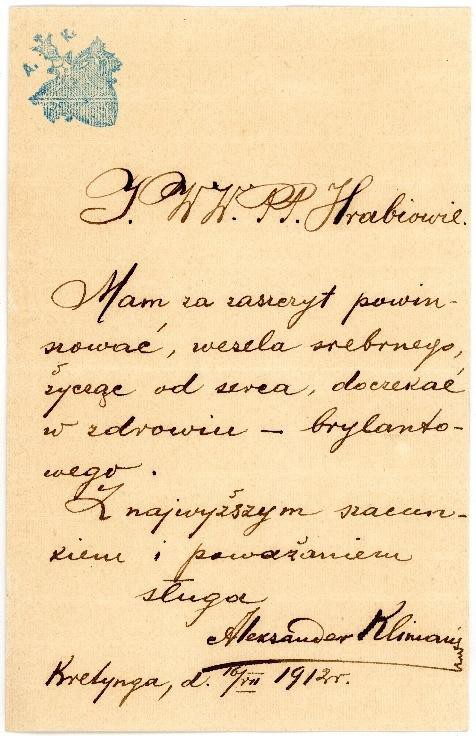 A. K.
J. W W. P P. Hrabiowie.
Mam za zaszczyt powin-
szować, wesela srebrnego,
życząc od serca, doczekać
w zdrowiu – brylanto-
wego.
Z najwyższym szacun-
kiem i poważaniem
sługa
Aleksander
Kretynga, d. 16/VII 1912r.